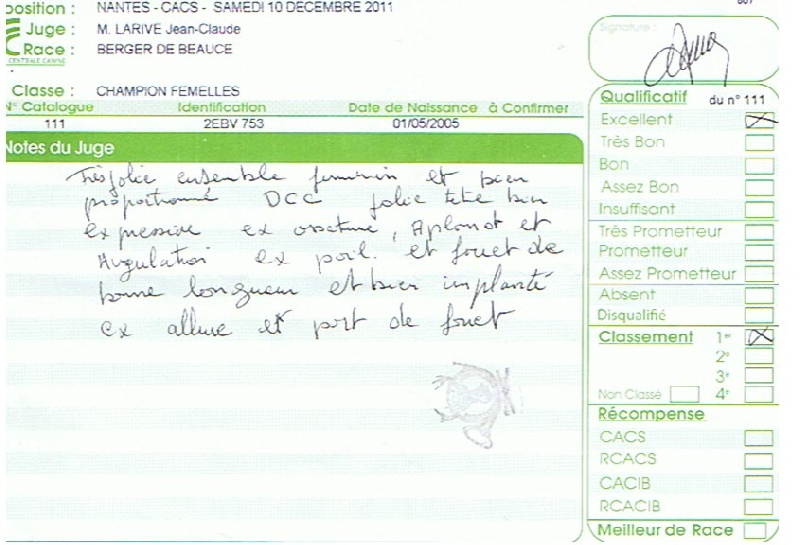 position : NANTES - CACS - SAMEDI 10 DECEMBRE 2011
Juge : M. LARIVE Jean-Claude
Race : BERGER DE BEAUCE
CENTRALE CANINE
Classe : CHAMPION FEMELLES
N° Catalogue Identification Date de Naissance à Confirmer
111 2EBV 753 01/05/2005
Notes du Juge
Très jolie ensemble feminin et bien
proportionné DCC jolie tete bien
expressive ex ossature, Aplomb et
Angulation ex poil. et fouet de
bonne longueur et bien implanté
ex allure et port de fouet
607
Signature :
Qualificatif du n° 111
Excellent
Très Bon
Bon
Assez Bon
Insuffisant
Très Prometteur
Prometteur
Assez Prometteur
Absent
Disqualifié
Classement 1er
2e
3e
Non Classé 4e
Récompense
CACS
RCACS
CACIB
RCACIB
Meilleur de Race